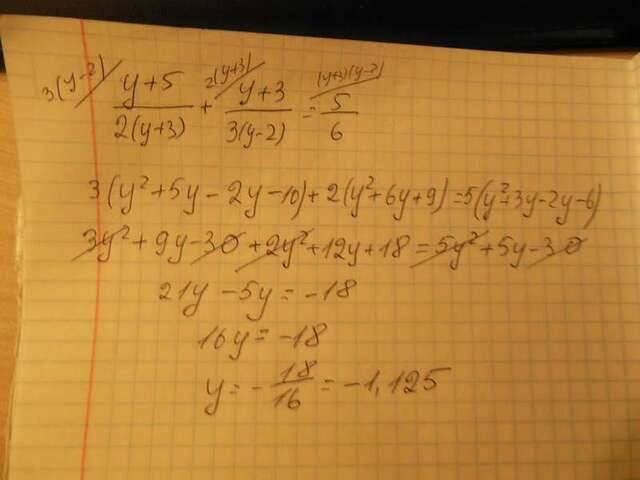 3(y-2)/ y+5/2(y+3) + 2(y+3)/ y+3/3(y-2) = (y+3)(y-2)/ 5/6
3(y²+5y-2y-10)+2(y²+6y+9)=5(y²+3y-2y-6)
3y²+9y-30+2y²+12y+18=5y²+5y-30
21y-5y=-18
16y=-18
y=-18/16=-1,125